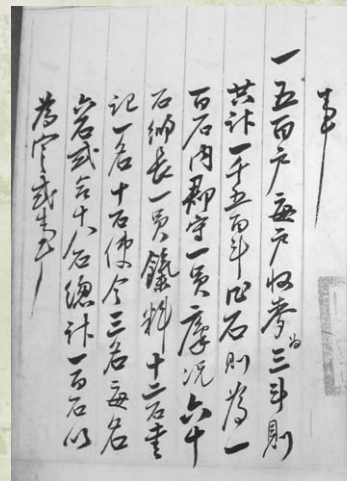 事
一五百戶每戶收劵為三斗則
共計一千五百斗作石則為一
百石內郡守一員廩況六十
石綱長一員餼料十二石書
記一名十石使令三名每名
六石式合十八石總計一百石以
為定式事